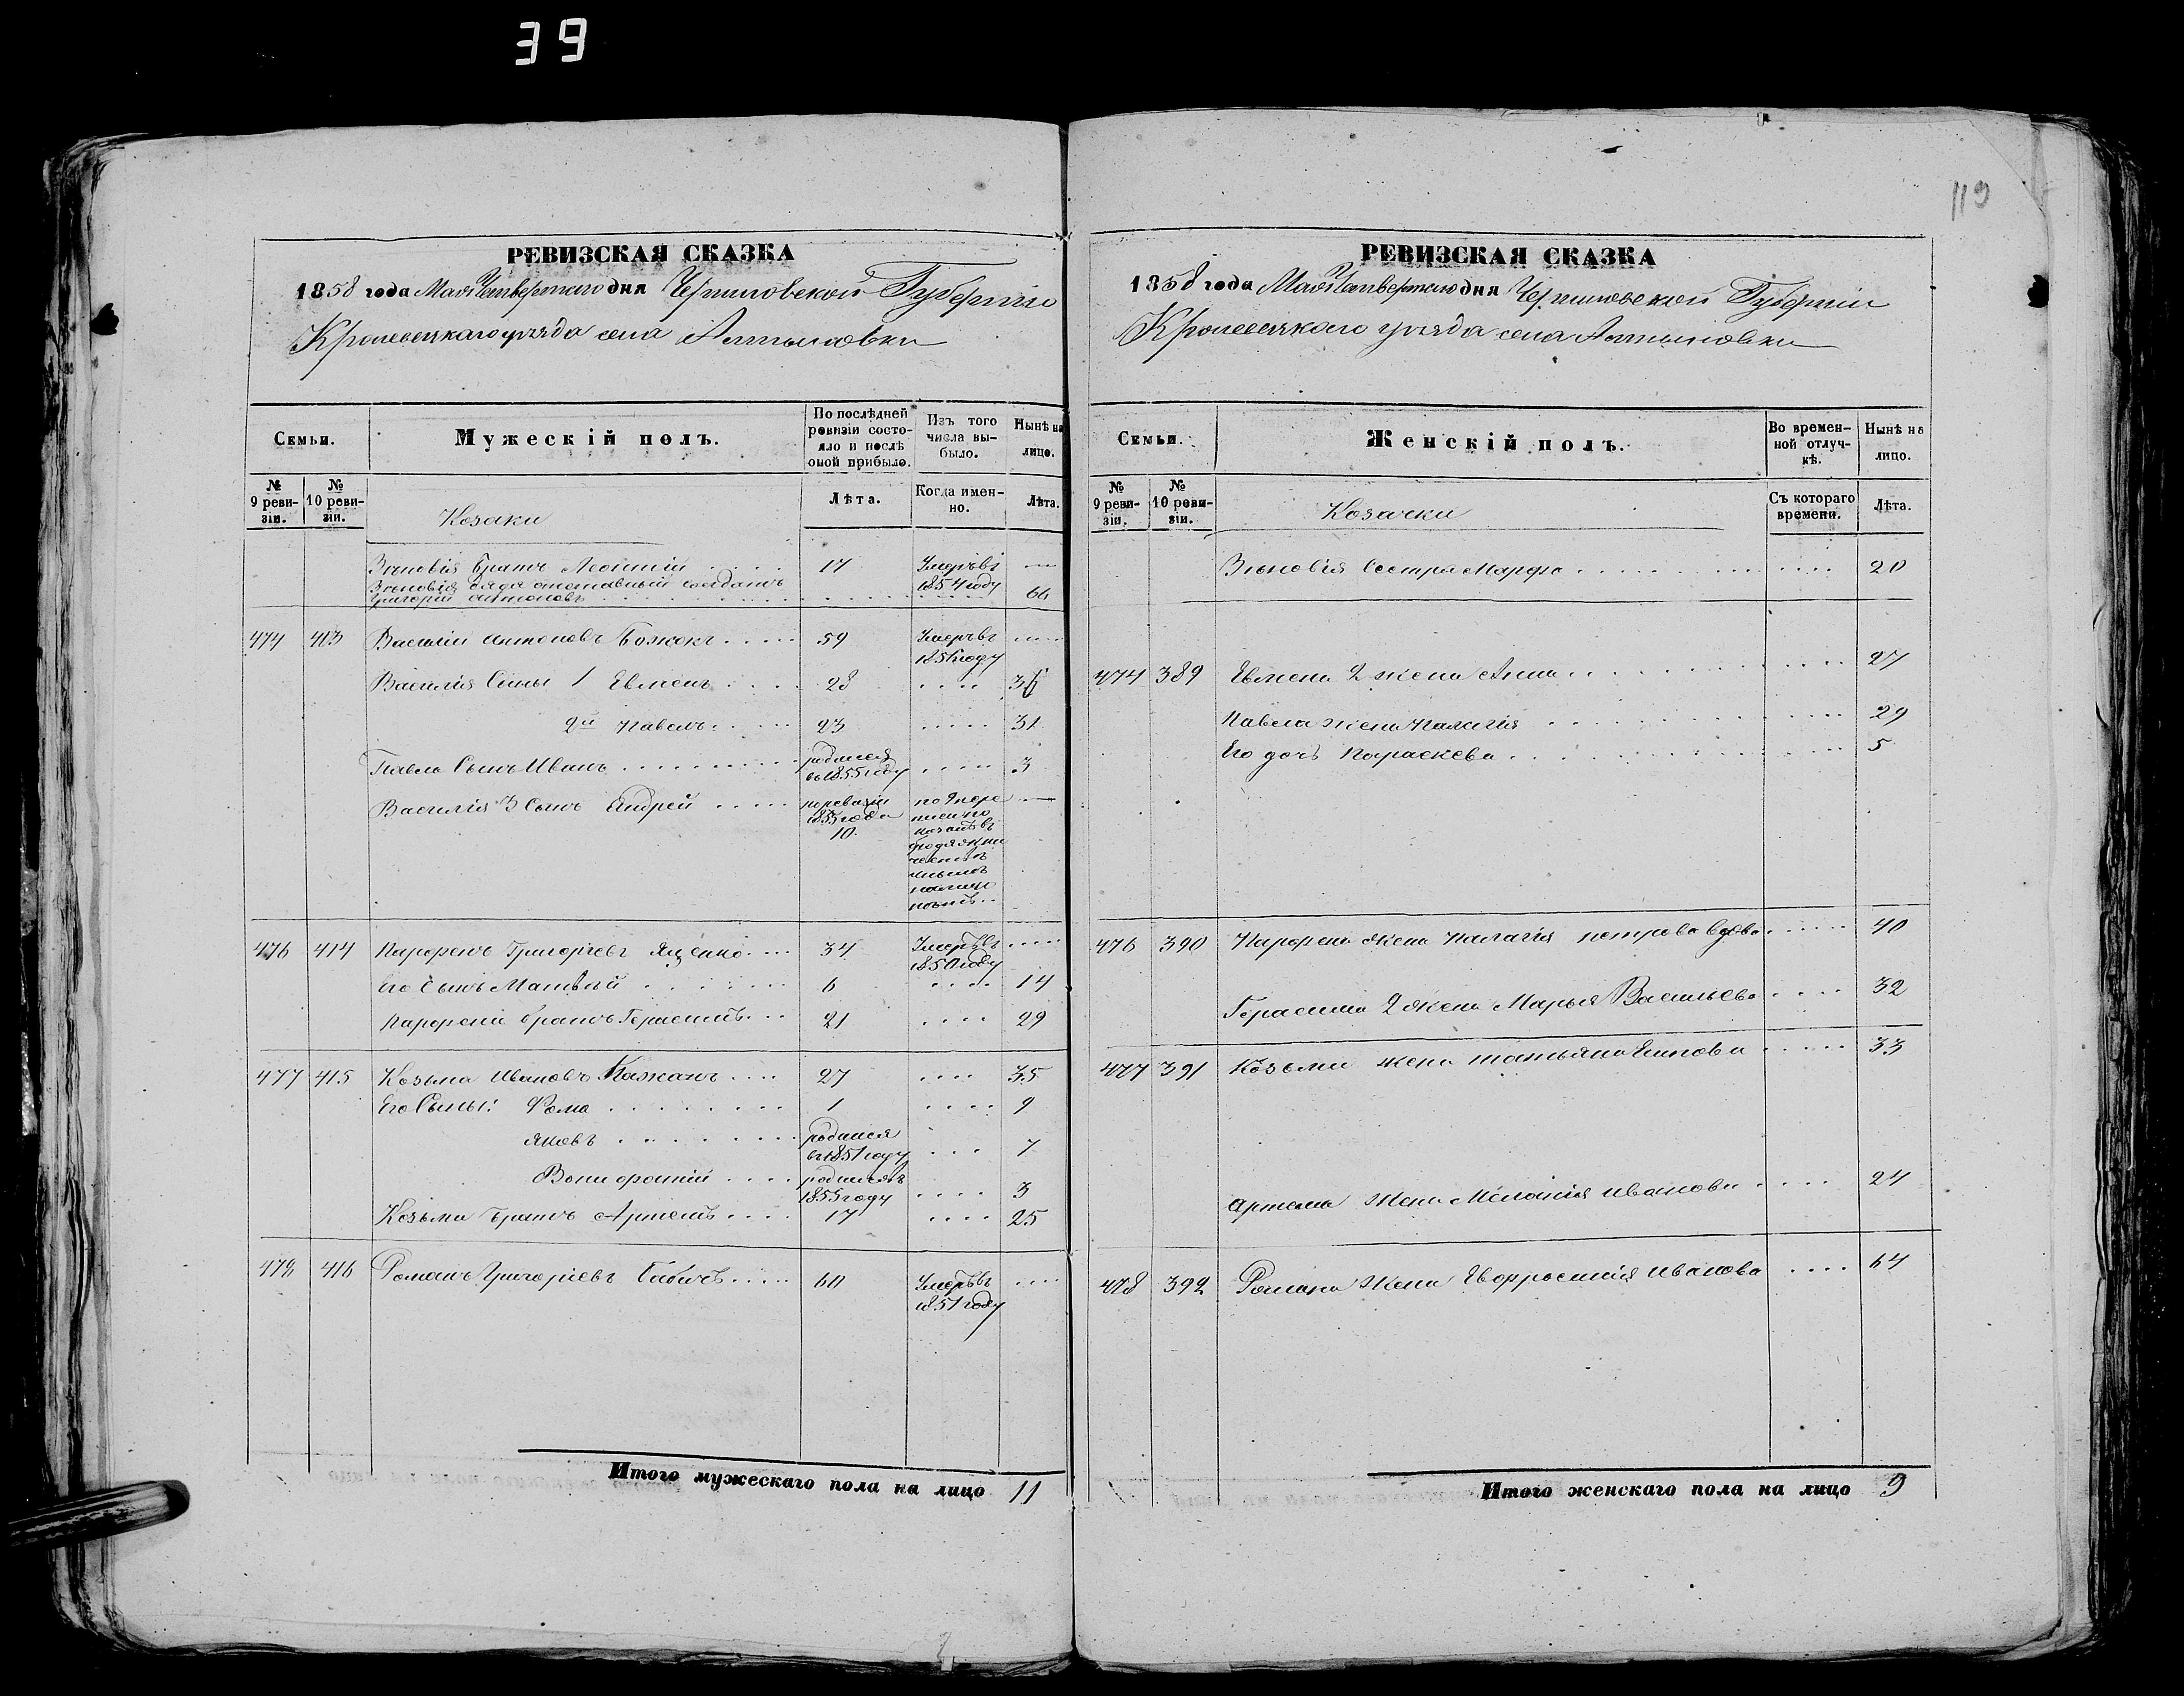 39
119
РЕВИЗСКАЯ СКАЗКА
1858 года Мая Четвертаго дня Черниговской Губерніи
Кролевецкаго уѣзда села Алтыновки
Семьи.
Мужескій полъ.
По послѣдней ревизіи состояло и послѣ оной прибыло.
Изъ того числа выбыло.
Нынѣ на лицо.
№ 9 ревизіи.
№ 10 ревизіи.
Козаки
Лѣта.
Когда именно.
Лѣта.
Зѣновія Братъ Леонтій 17 Умеръ въ 1854 году
Зѣновія дядя отставный солдатъ
Григорій Антоновъ 66
474 413 Василій Антоновъ Божокъ 59 Умеръ въ 1851 году
Василія Сыны 1 Евменъ 28 36
2й Павелъ 23 31
Павла Сынъ Иванъ родился въ 1855 году 3
Василія 3 Сынъ Андрей по ревизіи 1835 года 10
476 414 Парфенъ Григоріевъ Яценко 34 Умеръ въ 1850 году
Его Сынъ Матвѣй 6 14
Парфенія братъ Герасимъ 21 29
477 415 Козьма Ивановъ Кажанъ 27 35
Его Сыны: Фома 1 9
Яковъ родился въ 1851 году 7
Вонифатій родился въ 1855 году 3
Козьмы Братъ Артемъ 17 25
478 416 Романъ Григоріевъ Бабичъ 60 Умеръ въ 1851 году
Итого мужескаго пола на лицо 11
РЕВИЗСКАЯ СКАЗКА
1858 года Мая Четвертаго дня Черниговской Губерніи
Кролевецкаго уѣзда села Алтыновки
Семьи.
Женскій полъ.
Во временной отлучкѣ.
Нынѣ на лицо.
№ 9 ревизіи.
№ 10 ревизіи.
Козачки
Съ котораго времени.
Лѣта.
Зѣновія Сестра Марфа 20
474 389 Евмена 2 жена Анна 27
Павла жена Палагія 29
Его дочь Параскева 5
476 390 Парфена жена Палагія Петрова вдова 40
Герасима 2 жена Марья Васильева 32
477 391 Козьмы жена Татьяна Еимова 33
Артема Жена Меланія Иванова 24
478 392 Романа Жена Евфросинія Иванова 64
Итого женскаго пола на лицо 9